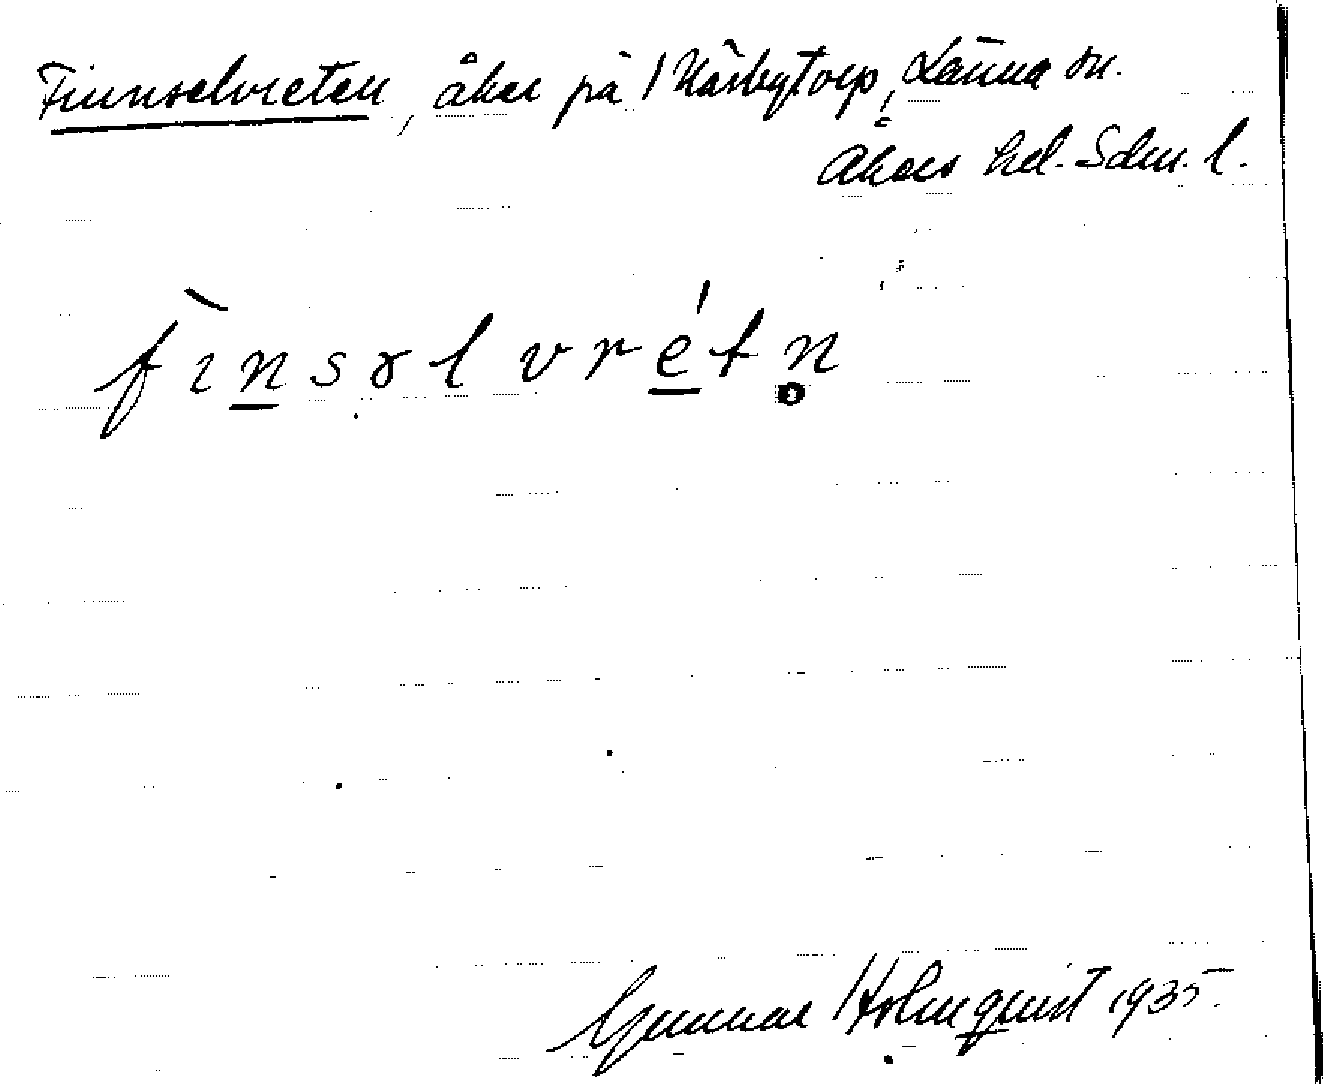 Finnselvreten, åker på / Kärbytorp, Länna sn.
Åkers hd. Sdm. l.
fìnsɤlvrétn̥
Gunnar Holmquist 1935.